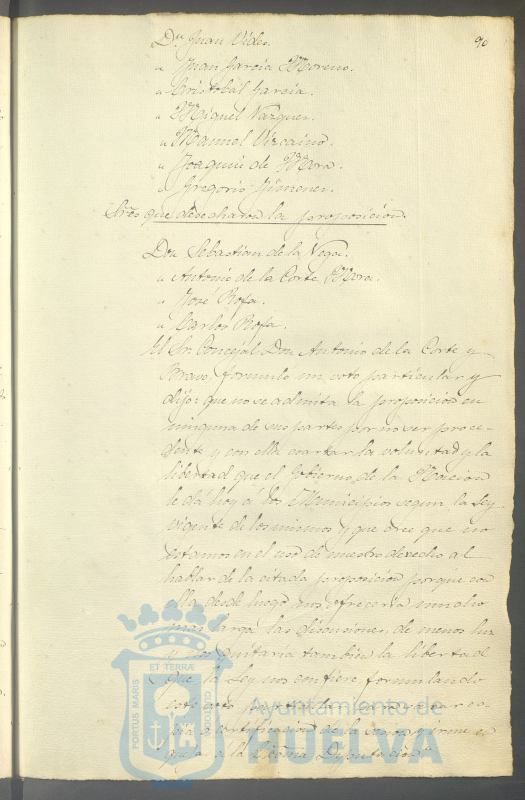 90
Dn. Juan Vides.
" Juan García Moreno.
" Cristobál García.
" Miguel Vazquez.
" Manuel Vizcaino.
" Joaquin de Mora.
" Gregorio Gimenez.
Sres que desecharon la proposicion.
Don Sebastian de la Vega.
" Antonio de la Corte Mora.
" José Rofa.
" Carlos Rofa.
El Sr. Concejal Don Antonio de la Corte y
Bravo, formuló un voto particular y
dijo: que no se admita la proposicion en
ninguna de sus partes por no ser proce-
dente y con ella coartar la voluntad y la
libertad que el Gobierno de la Nacion
le dá hoy á los Municipios segun la Ley
vigente de los mismos y que cree que no
estamos en el uso de nuestro derecho al
hablar de la citada proposicion porque con
ella desde luego nos ofreceria mucho
mas larga las discusiones, de menos luz
y nos quitaria tambien la libertad
que la Ley nos confiere, formulando
este voto particular para
certificacion de la
queja á la Excma Diputacion
PORTUS MARIS ET TERRÆ CUSTODIA
Ayuntamiento de
HUELVA